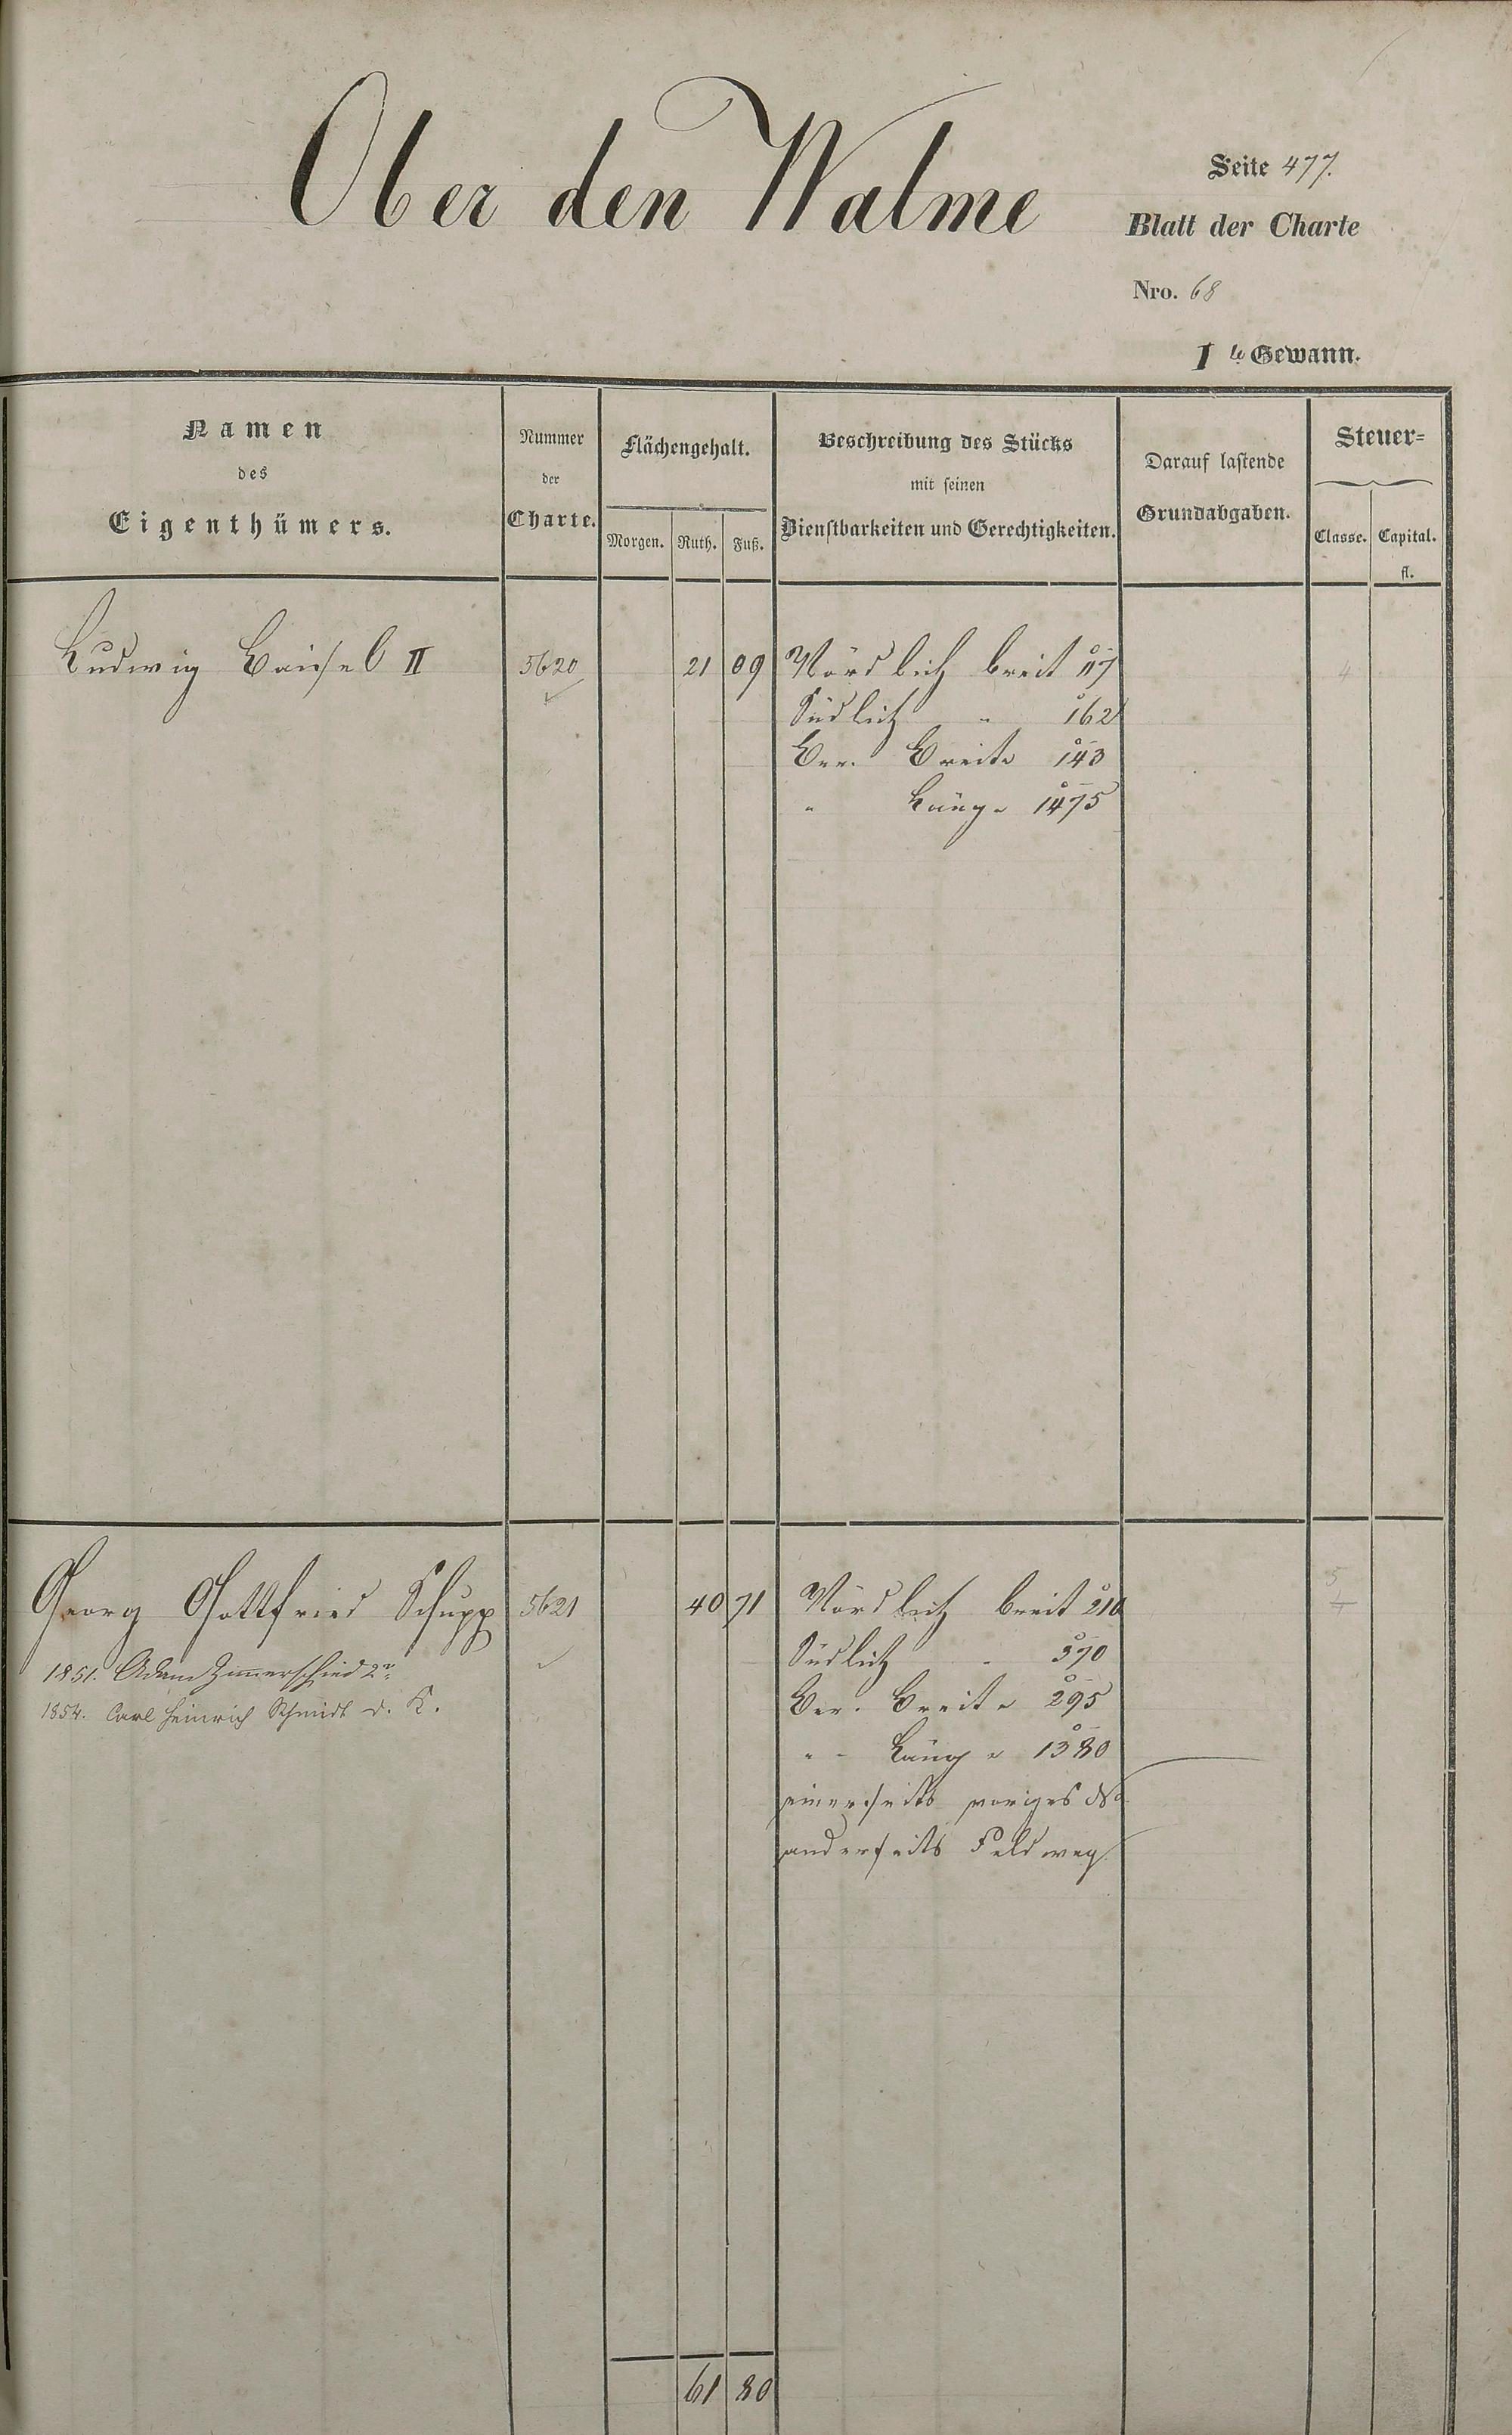 Ober den Walme
Seite 477.
Blatt der Charte
Nro. 68
1te Gewann.
Namen
des
Eigenthümers.
Nummer
der
Charte.
Flächengehalt.
Morgen. Ruth. Fuß.
Beschreibung des Stücks
mit seinen
Dienstbarkeiten und Gerechtigkeiten.
Darauf lastende
Grundabgaben.
Steuer-
Classe. Capital.
fl.
Ludwig II 5620 21 09 Nördlich breit 117 4
Südlich " 162
Ber. Breite 143
" Länge 1475
Georg Gottfried Schupp 5621 40 71 Nördlich breit 210
1851. Adam Zimmerschied 2r Südlich " 390
1854. Carl Heinrich Schmidt d. K. Ber. Breite 295
" Länge 1380
einerseits voriges
anderseits Feldweg
61 80